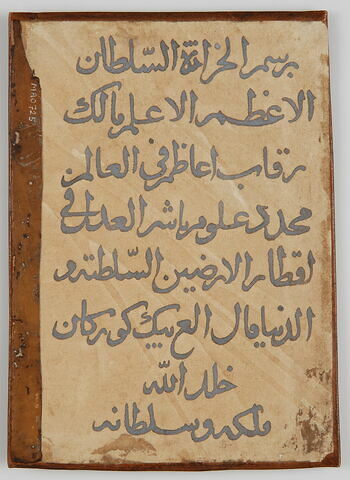 برسم الخزانة السّلطان
الاعظم الاعلم مالك
رقاب اعاظم في العالم
مجدد علوم ناشر العدل في
اقطار الارضين السّلطنة و
الدنيا قال الع بيك كوركان
خلد الله
ملكه وسلطانه
MAO 725